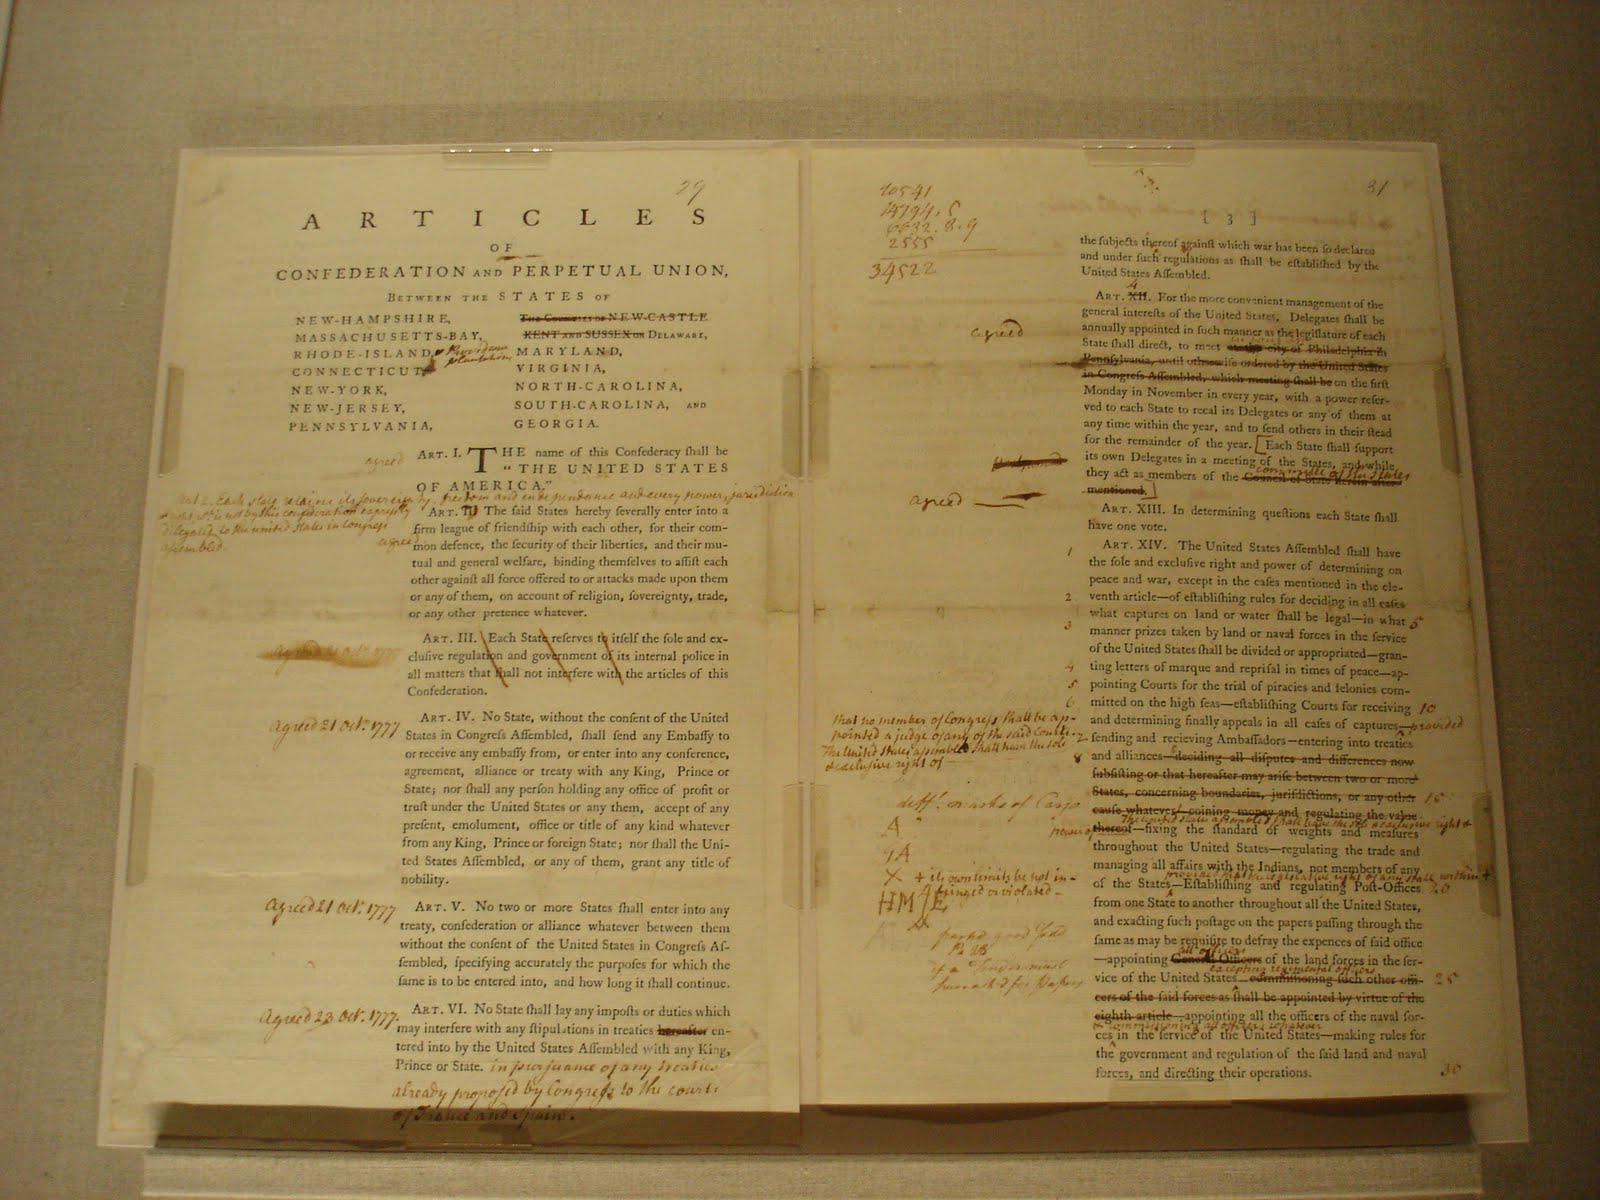 29
ARTICLES
OF
CONFEDERATION AND PERPETUAL UNION,
BETWEEN THE STATES OF
NEW-HAMPSHIRE,
MASSACHUSETTS-BAY,
RHODE-ISLAND & Providence
plantations
CONNECTICUT,
NEW-YORK,
NEW-JERSEY,
PENNSYLVANIA,
THE COUNTIES OF NEW-CASTLE
KENT AND SUSSEX ON DELAWARE,
MARYLAND,
VIRGINIA,
NORTH-CAROLINA,
SOUTH-CAROLINA, AND
GEORGIA.
agreed
ART. I. THE name of this Confederacy shall be
"THE UNITED STATES
OF AMERICA."
Art 2. Each state retains its sovereignty, freedom and independence and every power, jurisdiction
& right wch is not by this confederation expressly
delegated to the united states in Congress
assembled.
agreed
ART. The said States hereby severally enter into a
firm league of friendship with each other, for their com-
mon defence, the security of their liberties, and their mu-
tual and general welfare, binding themselves to assist each
other against all force offered to or attacks made upon them
or any of them, on account of religion, sovereignty, trade,
or any other pretence whatever.
ART. III. Each State reserves to itself the sole and ex-
clusive regulation and government of its internal police in
all matters that shall not interfere with the articles of this
Confederation.
Agreed 21 Oct. 1777
ART. IV. No State, without the consent of the United
States in Congress Assembled, shall send any Embassy to
or receive any embassy from, or enter into any conference,
agreement, alliance or treaty with any King, Prince or
State; nor shall any person holding any office of profit or
trust under the United States or any them, accept of any
present, emolument, office or title of any kind whatever
from any King, Prince or foreign State; nor shall the Uni-
ted States Assembled, or any of them, grant any title of
nobility.
Agreed 21 Oct. 1777
ART. V. No two or more States shall enter into any
treaty, confederation or alliance whatever between them
without the consent of the United States in Congress As-
sembled, specifying accurately the purposes for which the
same is to be entered into, and how long it shall continue.
Agreed 23 Oct. 1777.
ART. VI. No State shall lay any imposts or duties which
may interfere with any stipulations in treaties hereafter en-
tered into by the United States Assembled with any King,
Prince or State. in pursuance of any treaties
already proposed by Congress to the courts
of France and Spain.
31
10541
2555
34522
[ 3 ]
the subjects thereof against which war has been so declared
and under such regulations as shall be established by the
United States Assembled.
agreed
ART. XII. For the more convenient management of the
general interests of the United States, Delegates shall be
annually appointed in such manner as the legislature of each
State shall direct, to meet at the city of Philadelphia in
Pennsylvania, until otherwise ordered by the United States
in Congress Assembled, which meeting shall be on the first
Monday in November in every year, with a power reser-
ved to each State to recal its Delegates or any of them at
any time within the year, and to send others in their stead
for the remainder of the year. [Each State shall support
its own Delegates in a meeting of the States, and while
committee of the states
they act as members of the Council of State herein after
mentioned.]
agreed
ART. XIII. In determining questions each State shall
have one vote.
1
ART. XIV. The United States Assembled shall have
the sole and exclusive right and power of determining on
peace and war, except in the cases mentioned in the ele-
2
venth article—of establishing rules for deciding in all cases
what captures on land or water shall be legal—in what 5
3
manner prizes taken by land or naval forces in the service
of the United States shall be divided or appropriated—gran-
4
ting letters of marque and reprisal in times of peace—ap-
5
pointing Courts for the trial of piracies and felonies com-
6
mitted on the high seas—establishing Courts for receiving 10
and determining finally appeals in all cases of captures—provided
that no member of Congress shall be ap-
pointed a judge of any of the said courts.
The united states assembled shall have the sole
& exclusive right of
7
sending and recieving Ambassadors—entering into treaties
8
and alliances—deciding all disputes and differences now
subsisting or that hereafter may arise between two or more
States, concerning boundaries, jurisdictions, or any other 15
cause whatever—coining money and regulating the value
The united states assembled shall have the sole & exclusive right &
power of
thereof—fixing the standard of weights and measures
throughout the United States—regulating the trade and
managing all affairs with the Indians, not members of any
provided that the legislative right of any state within
+ its own limits be not in-
fringed or violated—
of the States—Establishing and regulating Post-Offices 20
from one State to another throughout all the United States,
and exacting such postage on the papers passing through the
same as may be requisite to defray the expences of said office
all officers
—appointing General Officers of the land forces in the ser-
excepting regimental officers
vice of the United States—commissioning such other offi- 25
cers of the said forces as shall be appointed by virtue of the
eighth article—appointing all the officers of the naval for-
& commissioning all officers whatever
ces in the service of the United States—making rules for
the government and regulation of the said land and naval
forces, and directing their operations. 30